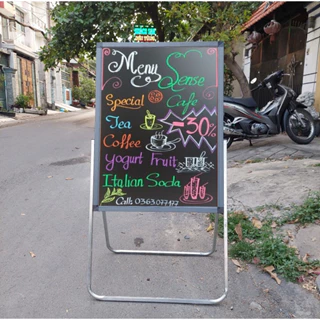 Menu Sense
Special Cafe
Tea
-30%
Coffee
Yogurt Fruit
Italian Soda
Call: 0363077177